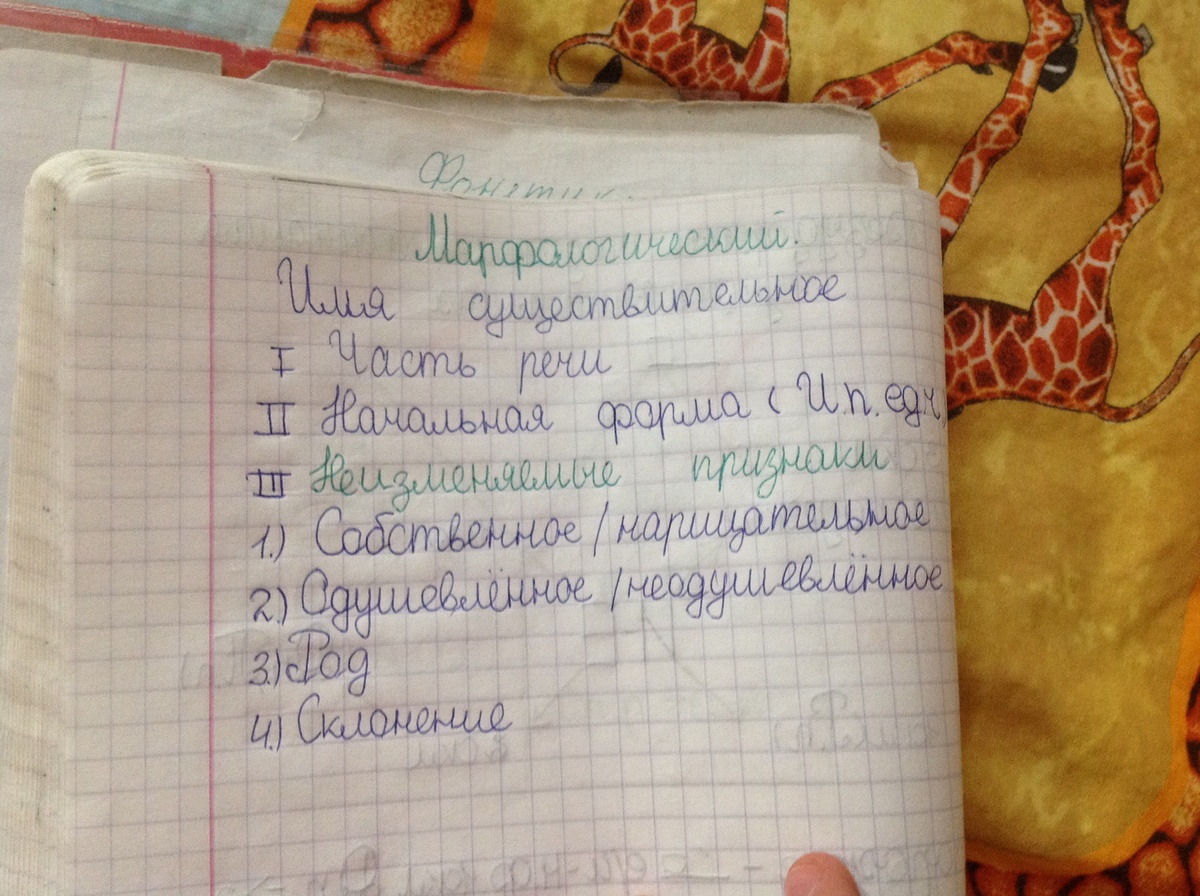 Фонетик
Марфологический.
Имя существительное
I Часть речи
II Начальная форма (И.п. ед.ч.
III Неизменяемые признаки
1.) Собственное / нарицательное
2.) Одушевлённое / неодушевлённое
3.) Род
4.) Склонение